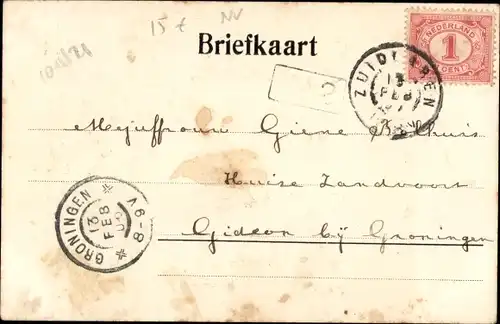 15 € NV
Briefkaart
NEDERLAND
1
CENT
ZUIDLAREN
13
FEB
Mejuffrouw Giene
Huize Zandvoort
Gideon bÿ Groningen
GRONINGEN
13
FEB
8-9V